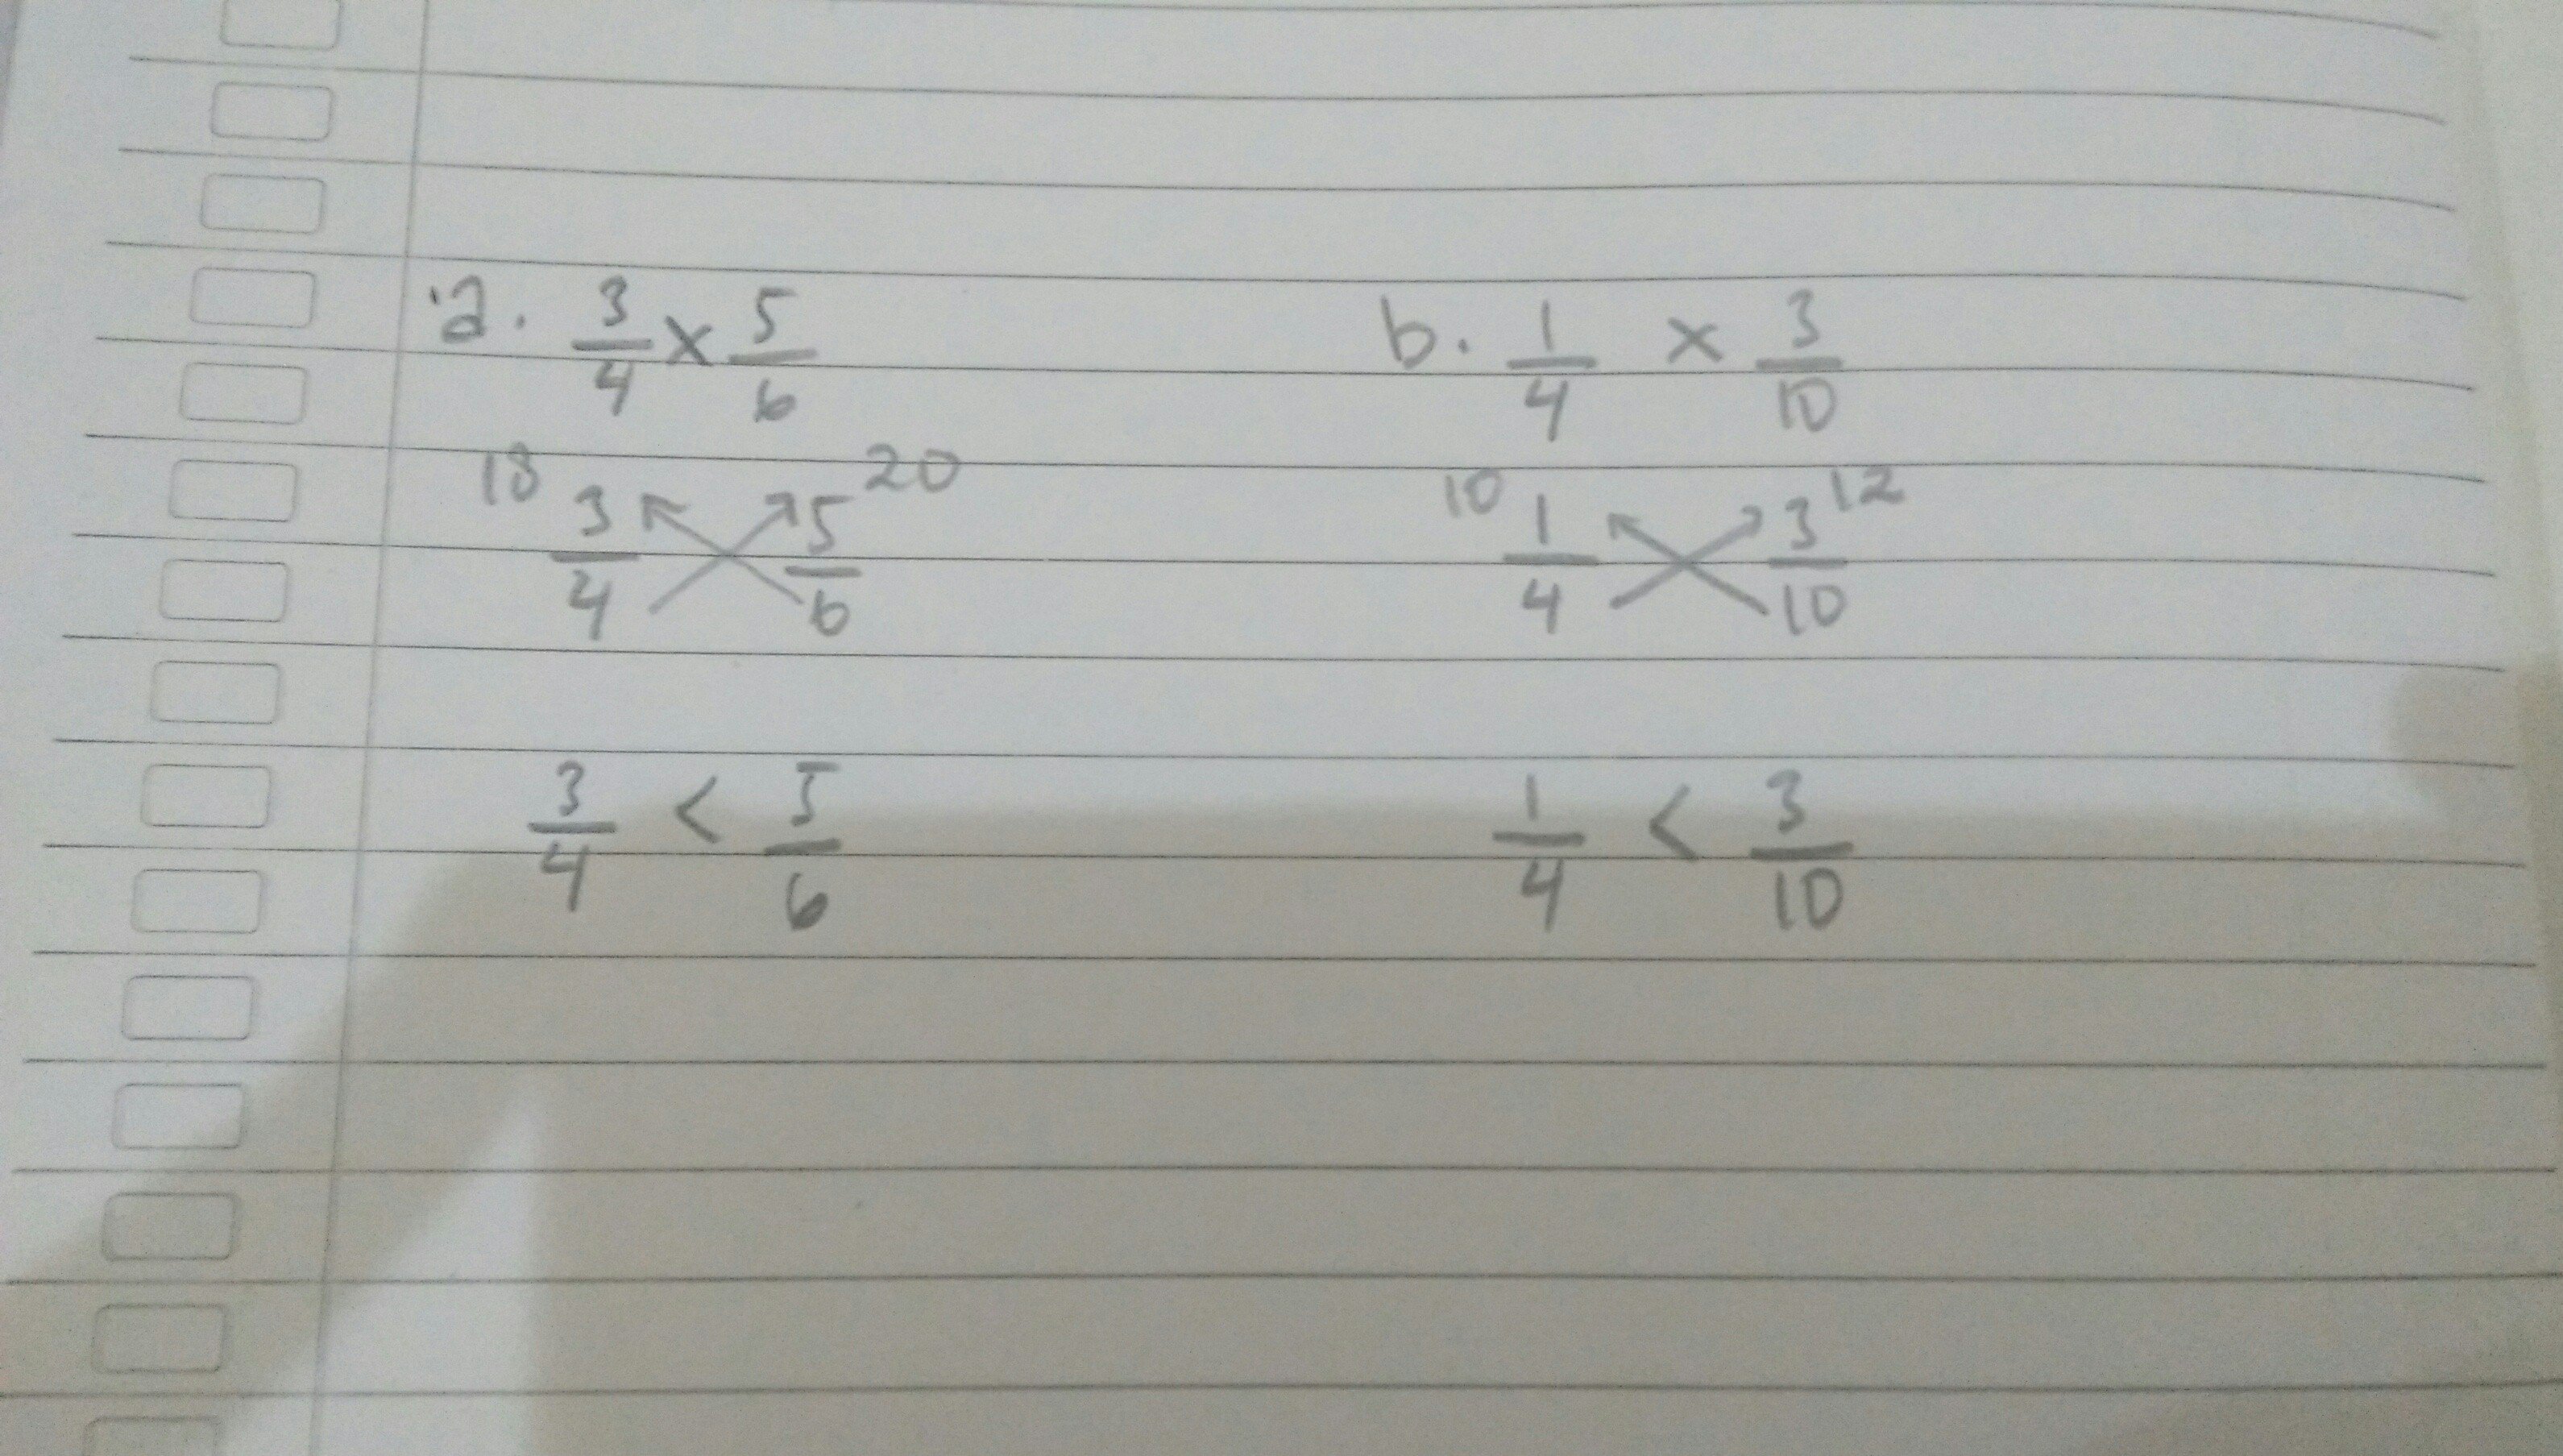 a. 3/4 × 5/6
18 3/4 5/6 20
3/4 < 5/6
b. 1/4 × 3/10
10 1/4 3/10 12
1/4 < 3/10